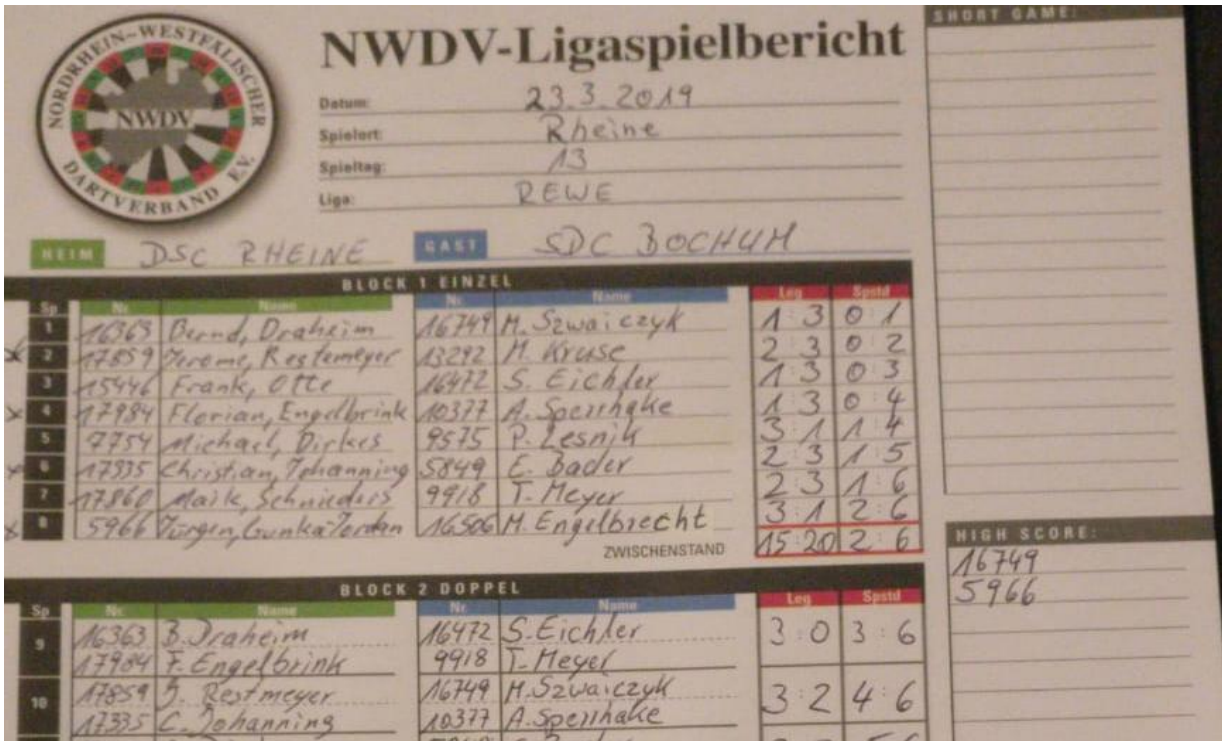 NORDRHEIN-WESTFÄLISCHER
NWDV
DARTVERBAND E.V.
NWDV-Ligaspielbericht
Datum: 23.3.2019
Spielort: Rheine
Spieltag: 13
Liga: REWE
HEIM DSC RHEINE GAST SDC BOCHUM
BLOCK 1 EINZEL
Sp Nr. Name Nr. Name Leg Spstd
1 16363 Bernd, Draheim 16749 M. Szwaiczyk 1:3 0:1
2 17859 Jerome, Restemeyer 13292 M. Kruse 2:3 0:2
3 15446 Frank, Otte 16472 S. Eichler 1:3 0:3
4 17984 Florian, Engelbrink 10377 A. Sperrhake 1:3 0:4
5 7754 Michael, Dirkes 9575 P. Lesnik 3:1 1:4
6 17335 Christian, Johanning 5849 E. Bader 2:3 1:5
7 17860 Maik, Schnieders 9918 T. Meyer 2:3 1:6
8 5966 Jürgen, 16506 M. Engelbrecht 3:1 2:6
ZWISCHENSTAND 15:20 2:6
BLOCK 2 DOPPEL
Sp Nr. Name Nr. Name Leg Spstd
9 16363 B. Draheim 16472 S. Eichler 3:0 3:6
17984 F. Engelbrink 9918 T. Meyer
10 17859 J. Restmeyer 16749 M. Szwaiczyk 3:2 4:6
17335 C. Johanning 10377 A. Sperrhake
SHORT GAME:
HIGH SCORE:
16749
5966